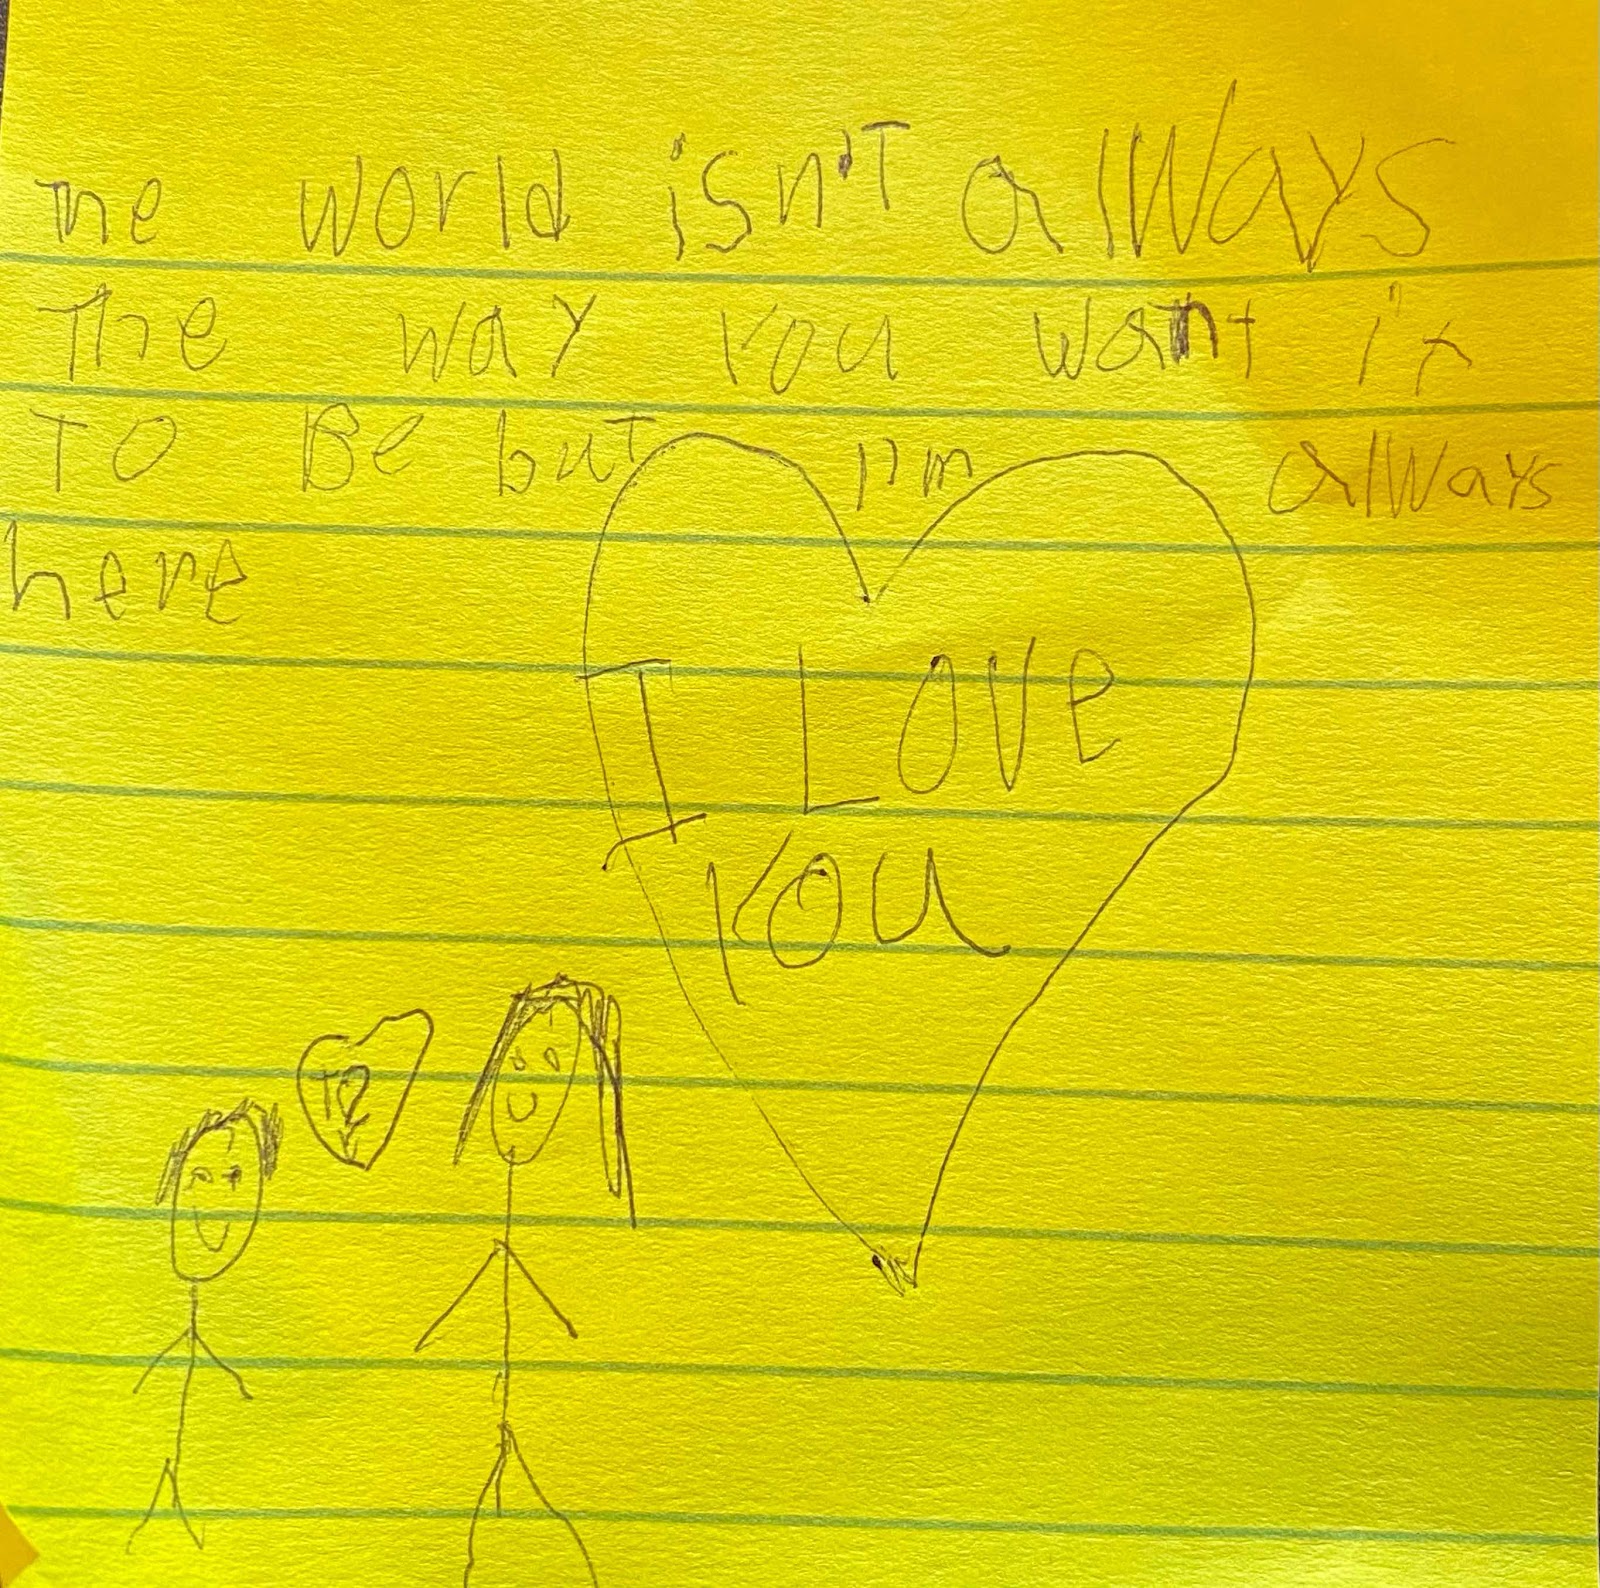 The world isn't always
The way you want it
To Be but I'm always
here
I Love
you